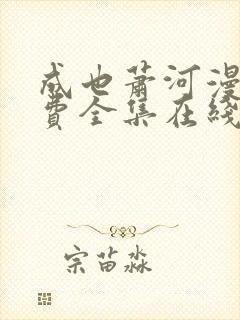 成也萧河漫
费全集在线
宗苗淼